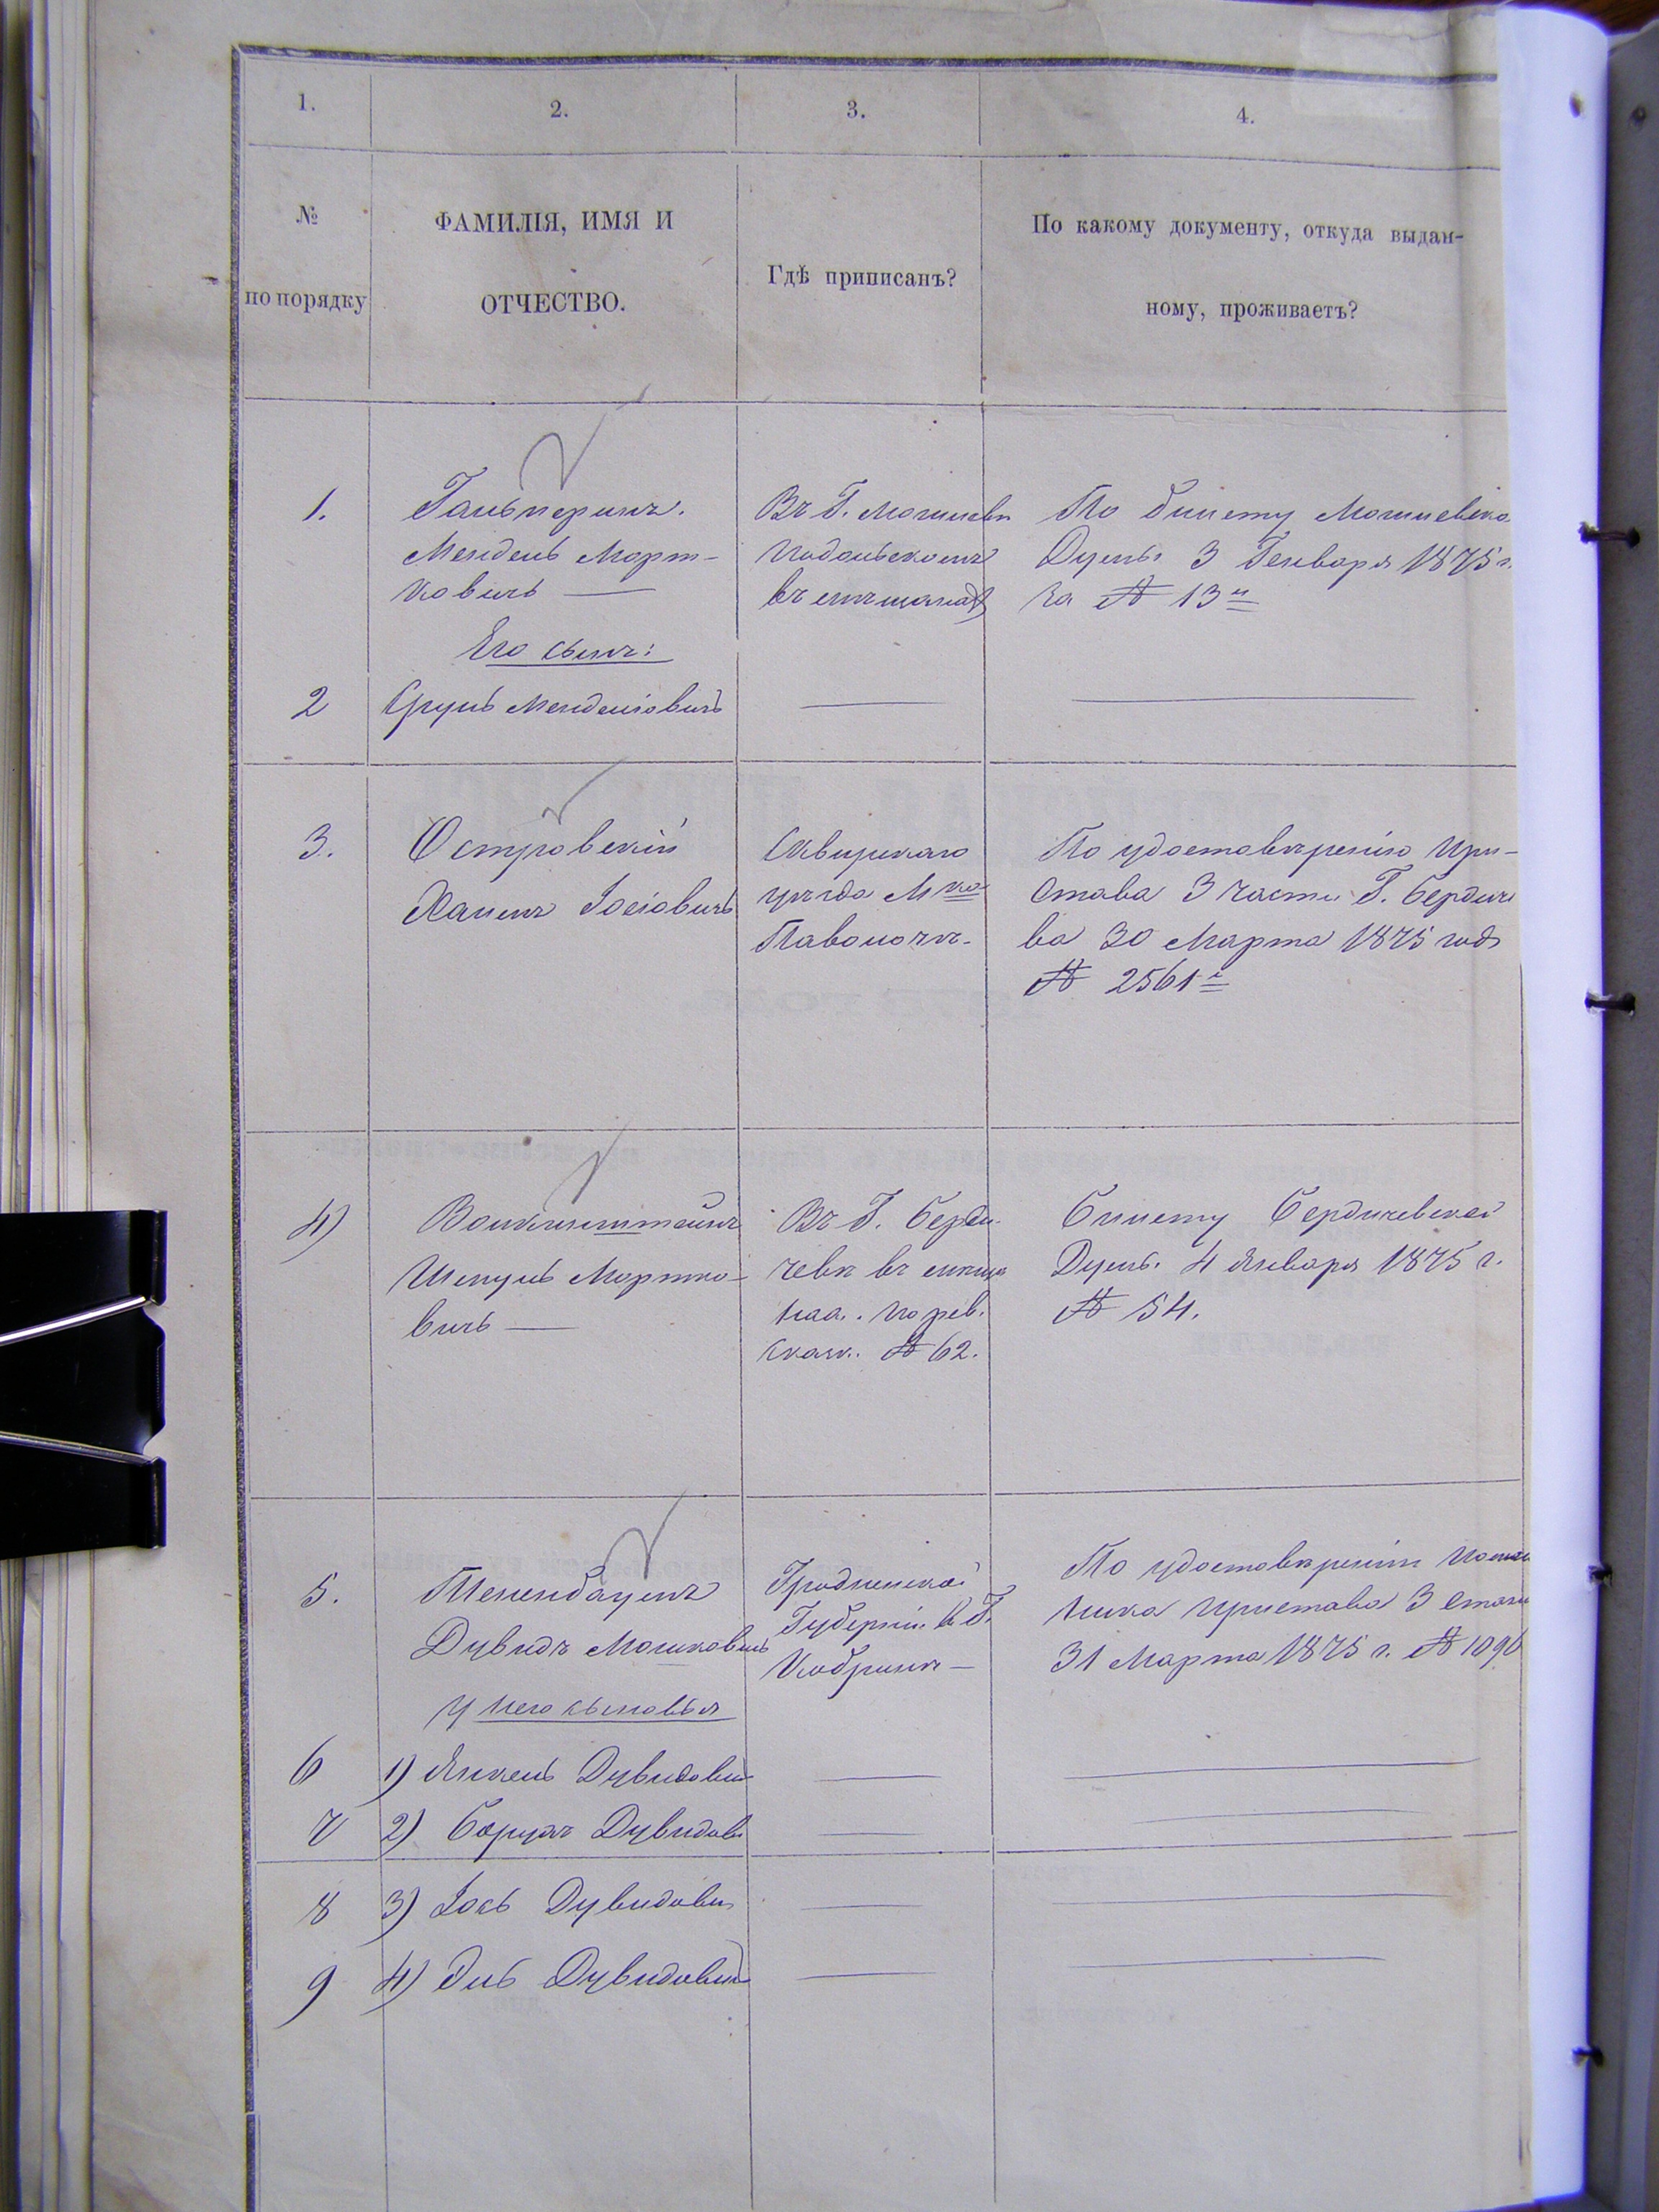 1.
2.
3.
4.
№
по порядку
ФАМИЛІЯ, ИМЯ И
ОТЧЕСТВО.
Гдѣ приписанъ?
По какому документу, откуда выдан-
ному, проживаетъ?
1.
Гальперинъ.
Мендель Морт-
ковичъ —
Его сынъ:
Въ Г. Могилевѣ
Подольскомъ
въ мѣщанахъ
По билету Могилевско
Думы 3 Генваря 1875 г.
за № 13й
2
Сруль Менделіовичъ
3.
Островскій
Хаимъ Іосіовичъ
Сквирскаго
уѣзда М ко
Паволочѣ-
По удостовѣренію При-
става 3 части Г. Бердиче
ва 30 Марта 1875 года
№ 2561й
4)
Шмуль Мортко-
вичъ —
Въ Г. Берди-
чевѣ въ мѣща
наа. по рев.
сказк. № 62.
Билету Бердичевской
Думы. 4 Января 1875 г.
№ 54.
5.
Тененбаумъ
Дувидъ Мошковичъ
у него сыновья
Гродненской
Губерніи в Г.
Кобринѣ —
По удостовѣренію
ника Пристава 3 стана
31 Марта 1875 г. № 1090
6
1) Янкель Дувидович
7
2) Борухъ Дувидов
8
3) Іось Дувидович
9
4) Эль Дувидович